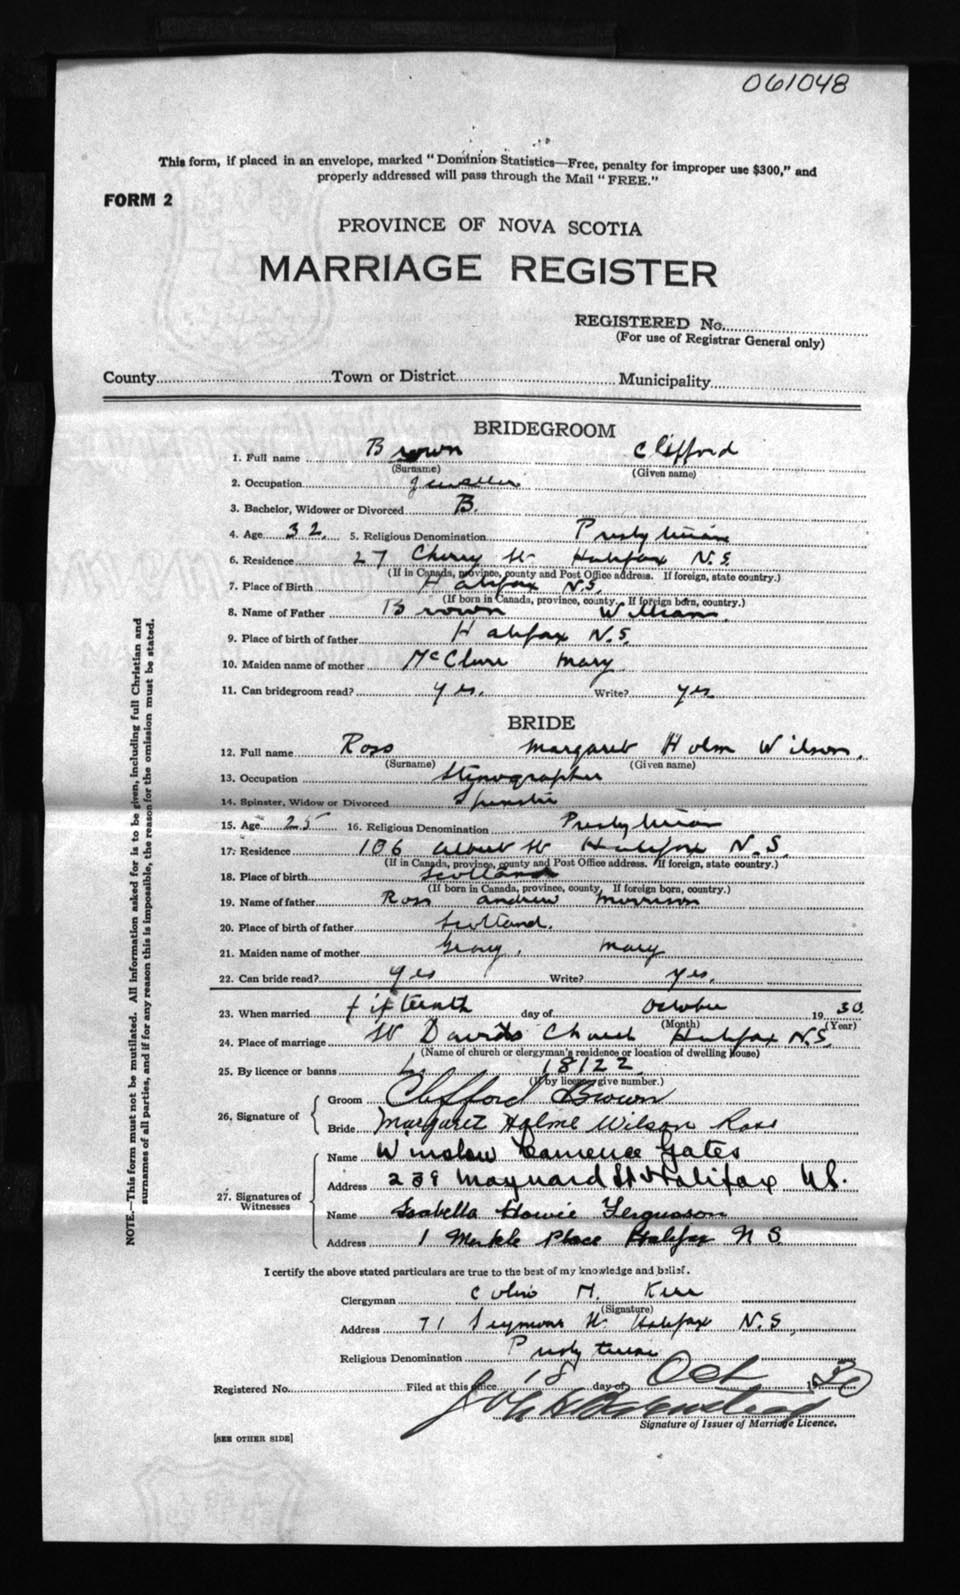 061048
This form, if placed in an envelope, marked "Dominion Statistics—Free, penalty for improper use $300," and
properly addressed will pass through the Mail "FREE."
FORM 2
PROVINCE OF NOVA SCOTIA
MARRIAGE REGISTER
REGISTERED No.
(For use of Registrar General only)
County Town or District Municipality
BRIDEGROOM
1. Full name Brown Clifford
(Surname) (Given name)
2. Occupation
3. Bachelor, Widower or Divorced B.
4. Age 32. 5. Religious Denomination Presbyterian
6. Residence 27 Cherry St Halifax N.S.
(If in Canada, province, county and Post Office address. If foreign, state country.)
7. Place of Birth Halifax N.S.
(If born in Canada, province, county, If foreign born, country.)
8. Name of Father Brown William.
9. Place of birth of father Halifax N.S.
10. Maiden name of mother McClure Mary
11. Can bridegroom read? yes. Write? yes
BRIDE
12. Full name Ross Margaret Holm Wilson.
(Surname) (Given name)
13. Occupation Stenographer
14. Spinster, Widow or Divorced Spinster
15. Age 25 16. Religious Denomination Presbyterian
17. Residence 106 Albert St Halifax N.S.
(If in Canada, province, county and Post Office address. If foreign, state country.)
18. Place of birth Scotland
(If born in Canada, province, county, If foreign born, country.)
19. Name of father Ross Andrew Morrison
20. Place of birth of father Scotland.
21. Maiden name of mother Mary
22. Can bride read? yes Write? yes.
23. When married fifteenth day of October 1930.
(Month) (Year)
24. Place of marriage St Davids Church Halifax N.S.
(Name of church or clergyman's residence or location of dwelling house)
25. By licence or banns 18122
(If by licence give number.)
26. Signature of Groom Clifford Brown
Bride Margaret Holme Wilson Ross
27. Signatures of Witnesses
Name Winslow Gates
Address 239 Maynard St Halifax NS.
Name Isabella Howie Ferguson
Address 1 Place Halifax N S
I certify the above stated particulars are true to the best of my knowledge and belief.
Clergyman Colin M. Kerr
(Signature)
Address 71 Seymour St. Halifax N.S.
Religious Denomination Presbyterian
Registered No. Filed at this office 18 day of Oct 1930
Signature of Issuer of Marriage Licence.
[SEE OTHER SIDE]
NOTE.—This form must not be mutilated. All information asked for is to be given, including full Christian and
surnames of all parties, and if for any reason this is impossible, the reason for the omission must be stated.